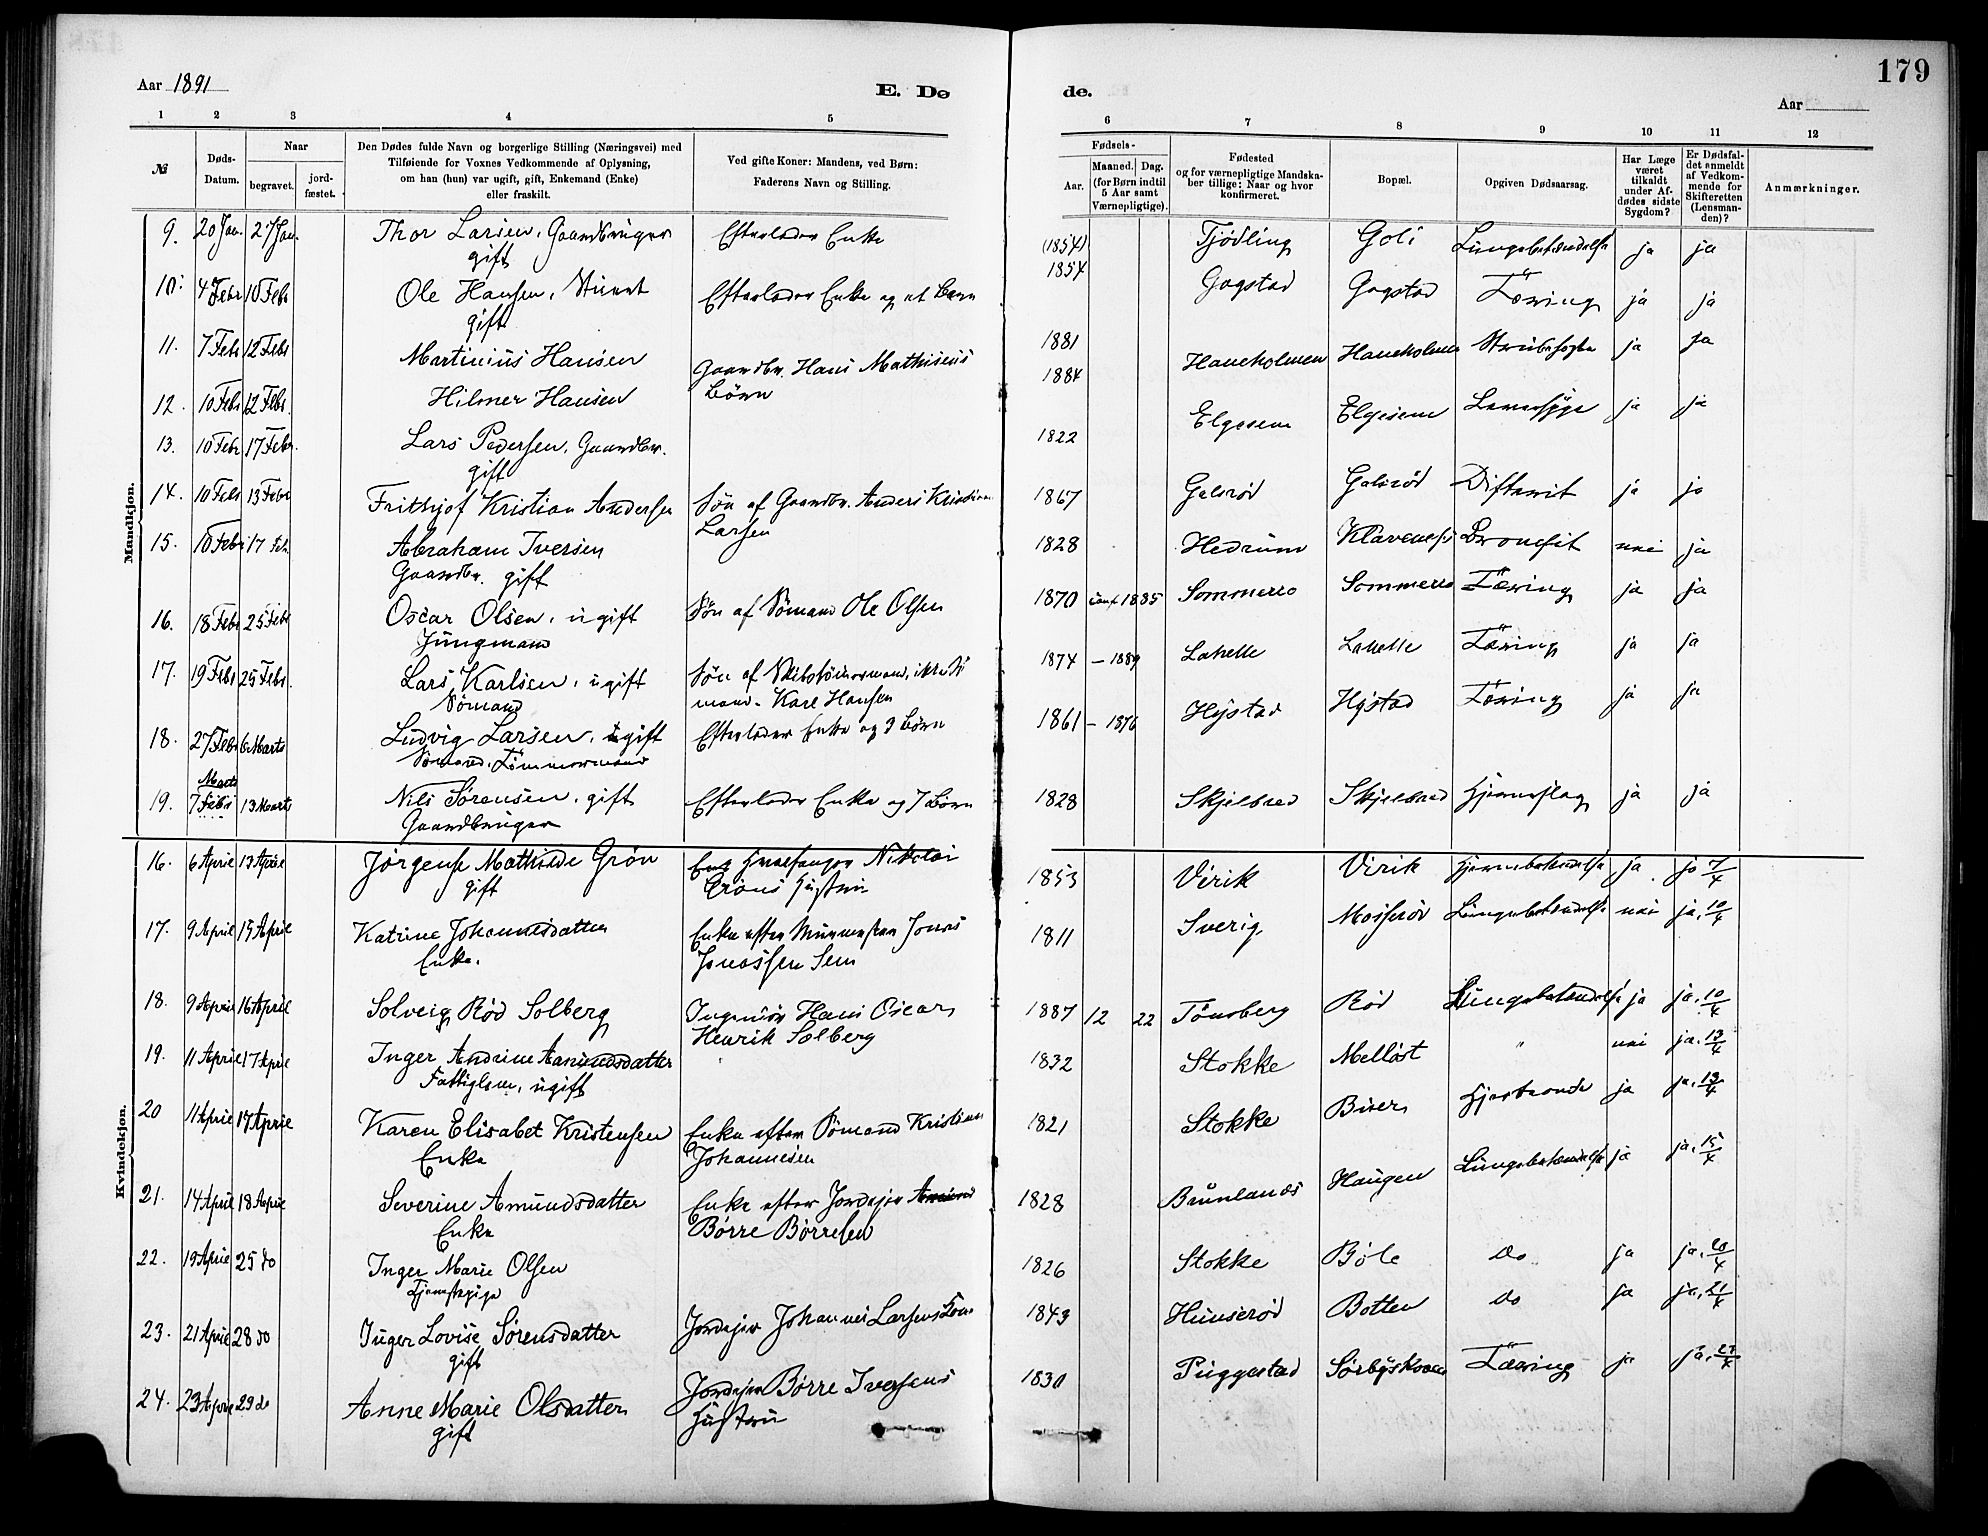 179
Aar 1891
E. Dø
de.
Aar
1 2 3 4 5
6 7 8 9 10 11 12
№
Døds-
Datum.
Naar
begravet.
jord-
fæstet.
Den Dødes fulde Navn og borgerlige Stilling (Næringsvei) med
Tilføiende for Voxnes Vedkommende af Oplysning,
om han (hun) var ugift, gift, Enkemand (Enke)
eller fraskilt.
Ved gifte Koner: Mandens, ved Børn:
Faderens Navn og Stilling.
Fødsels-
Aar.
Maaned.
Dag.
(for Børn indtil
5 Aar samt
Værnepligtige).
Fødested
og for værnepligtige Mandska-
ber tillige: Naar og hvor
konfirmeret.
Bopæl.
Opgiven Dødsaarsag.
Har Læge
været
tilkaldt
under Af-
dødes sidste
Sygdom?
Er Dødsfal-
det anmeldt
af Vedkom-
mende for
Skifteretten
(Lensman-
den)?
Anmærkninger.
Mandkjøn.
9. 20 Jan. 27 Jan. Thor Larsen, Gaardbruger Efterlader Enke (1854) Tjødling Goli Lungebetændelse ja ja
gift
10. 4 Febr 10 Febr Ole Hansen, Efterlader Enke og et Barn 1854 Gogstad Gogstad Tæring ja ja
gift
11. 7 Febr 12 Febr Martinius Hansen Gaardbr. Hans Mathisens 1881 Haneholmen Haneholmen Strubehoste ja ja
12. 10 Febr 12 Febr. Hilmer Hansen Børn 1884
13. 10 Febr 17 Febr. Lars Pedersen, Gaardbr. 1822 Elgesem Elgesem Leversyge ja ja
gift
14. 10 Febr 13 Febr Frithjof Kristian Andersen Søn af Gaardbr. Anders Kristian 1867 Galsrød Galsrød Difterit ja ja
Larsen
15. 10 Febr 17 Feb Abraham Iversen 1828 Hedrum Klavenes Bronchit nei ja
Gaardbr. gift
16. 18 Febr 25 Febr Oscar Olsen, ugift Søn af Sømand Ole Olsen 1870 conf 1885 Sommerro Sommerro Tæring ja ja
Jungmand
17. 19 Febr 25 Febr. Lars Karlsen, ugift Søn af Karl Hansen 1874 – 1889 Lahelle Lahelle Tæring ja ja
Sømand
18. 27 Febr 6 Marts Ludvig Larsen, gift Efterlader Enke og 3 Børn 1861 – 1876 Hystad Hystad Tæring ja ja
Sømand, Tømmermand
Marts
19. 7 Febr 13 Marts Nils Sørensen, gift Efterlader Enke og 7 Børn 1828 Skjelbred Skjelbred Hjerneslag ja ja
Gaardbruger
Kvindekjøn.
16. 6 April 13 April Jørgense Mathilde Grøn Hvalfanger Nikolai 1853 Virik Virik Hjernebetændelse ja ja 7/4
gift Grøns Hustru
17. 9 April 15 April Katrine Johannesdatter Enke efter Murmester Jonas 1811 Sverig Mosserød Lungebetændelse nei ja, 10/4
Enke. Jonassen Sem
18. 9 April 16 April Solveig Rød Solberg Ingeniør Hans Oscar 1887 12 22 Tønsberg Rød Lungebetændelse ja ja, 10/4
Henrik Solberg
19. 11 April 17 April Inger Andrine Aamundsdatter 1832 Stokke Melløst " nei ja, 13/4
Fattiglem, ugift
20 11 April 17 April Karen Elisabet Kristensen Enke efter Sømand Kristian 1821 Stokke ja ja, 13/4
Enke Johannesen
21. 14 April 18 April Severine Amundsdatter Enke efter Jordejer 1828 Brunlands Haugen Lungebetændelse ja ja, 15/4
Enke Børre Børresen
22. 19 April 25 do Inger Marie Olsen 1826 Stokke Bøle do ja ja, 20/4
Tjenestepige
23. 21 April 28 do Inger Lovise Sørensdatter Jordejer Johannes Larsens Kone 1843 Hunserød Botten do ja ja, 21/4
gift
24. 23 April 29 do Anne Marie Olsdatter Jordejer Børre Iversens 1830 Puggestad Tæring ja ja, 27/4
gift Hustru